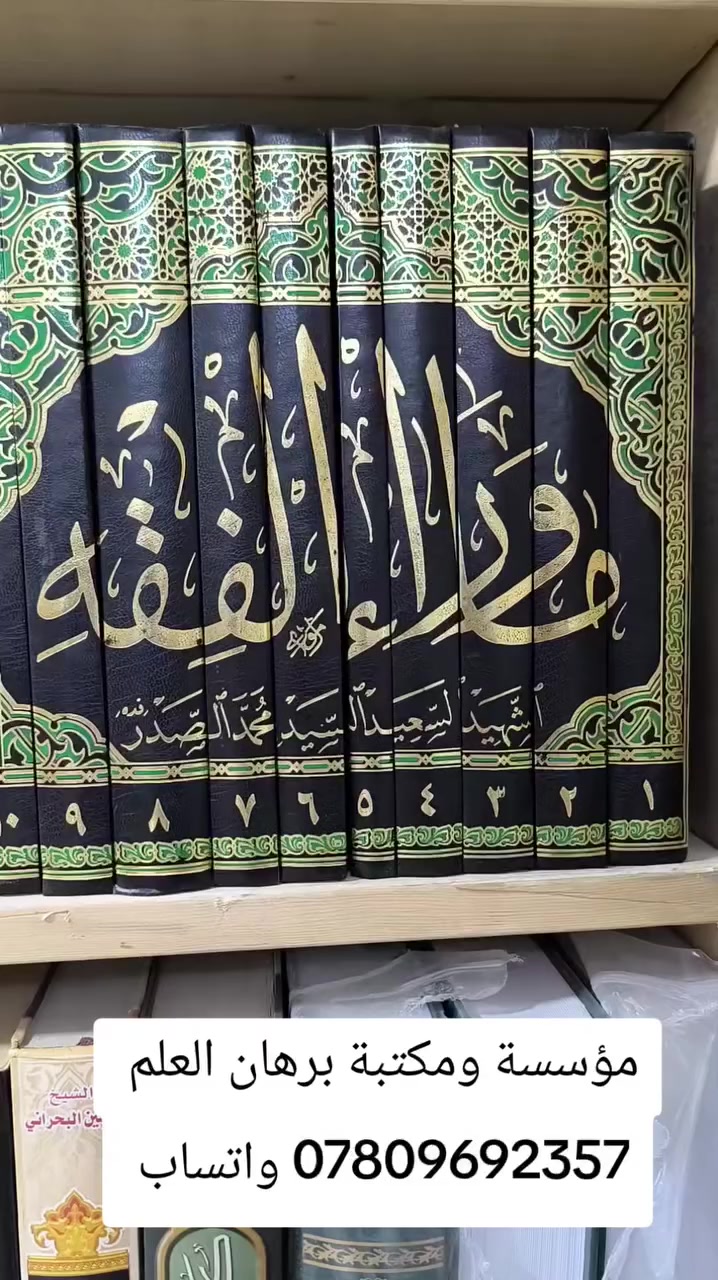 ما وراء الفقه
الشهيد السعيد السيد محمد الصدر
١ ٢ ٣ ٤ ٥ ٦ ٧ ٨ ٩ ١٠
الشيخ
البحراني
مؤسسة ومكتبة برهان العلم
07809692357 واتساب